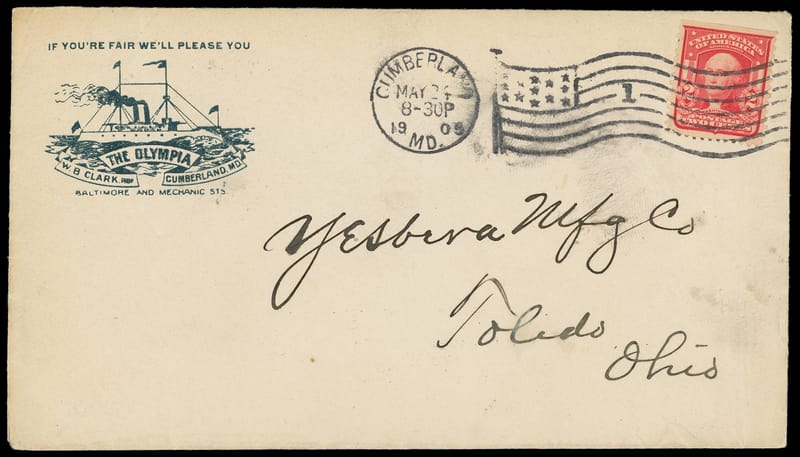 IF YOU'RE FAIR WE'LL PLEASE YOU
THE OLYMPIA
W. B. CLARK, PROP.
CUMBERLAND, MD.
BALTIMORE AND MECHANIC STS.
CUMBERLAND
MAY 24
8-30P
1905
MD.
1
UNITED STATES
OF AMERICA
2 2
POSTAGE
TWO CENTS
Yesbera Mfg Co
Toledo
Ohio